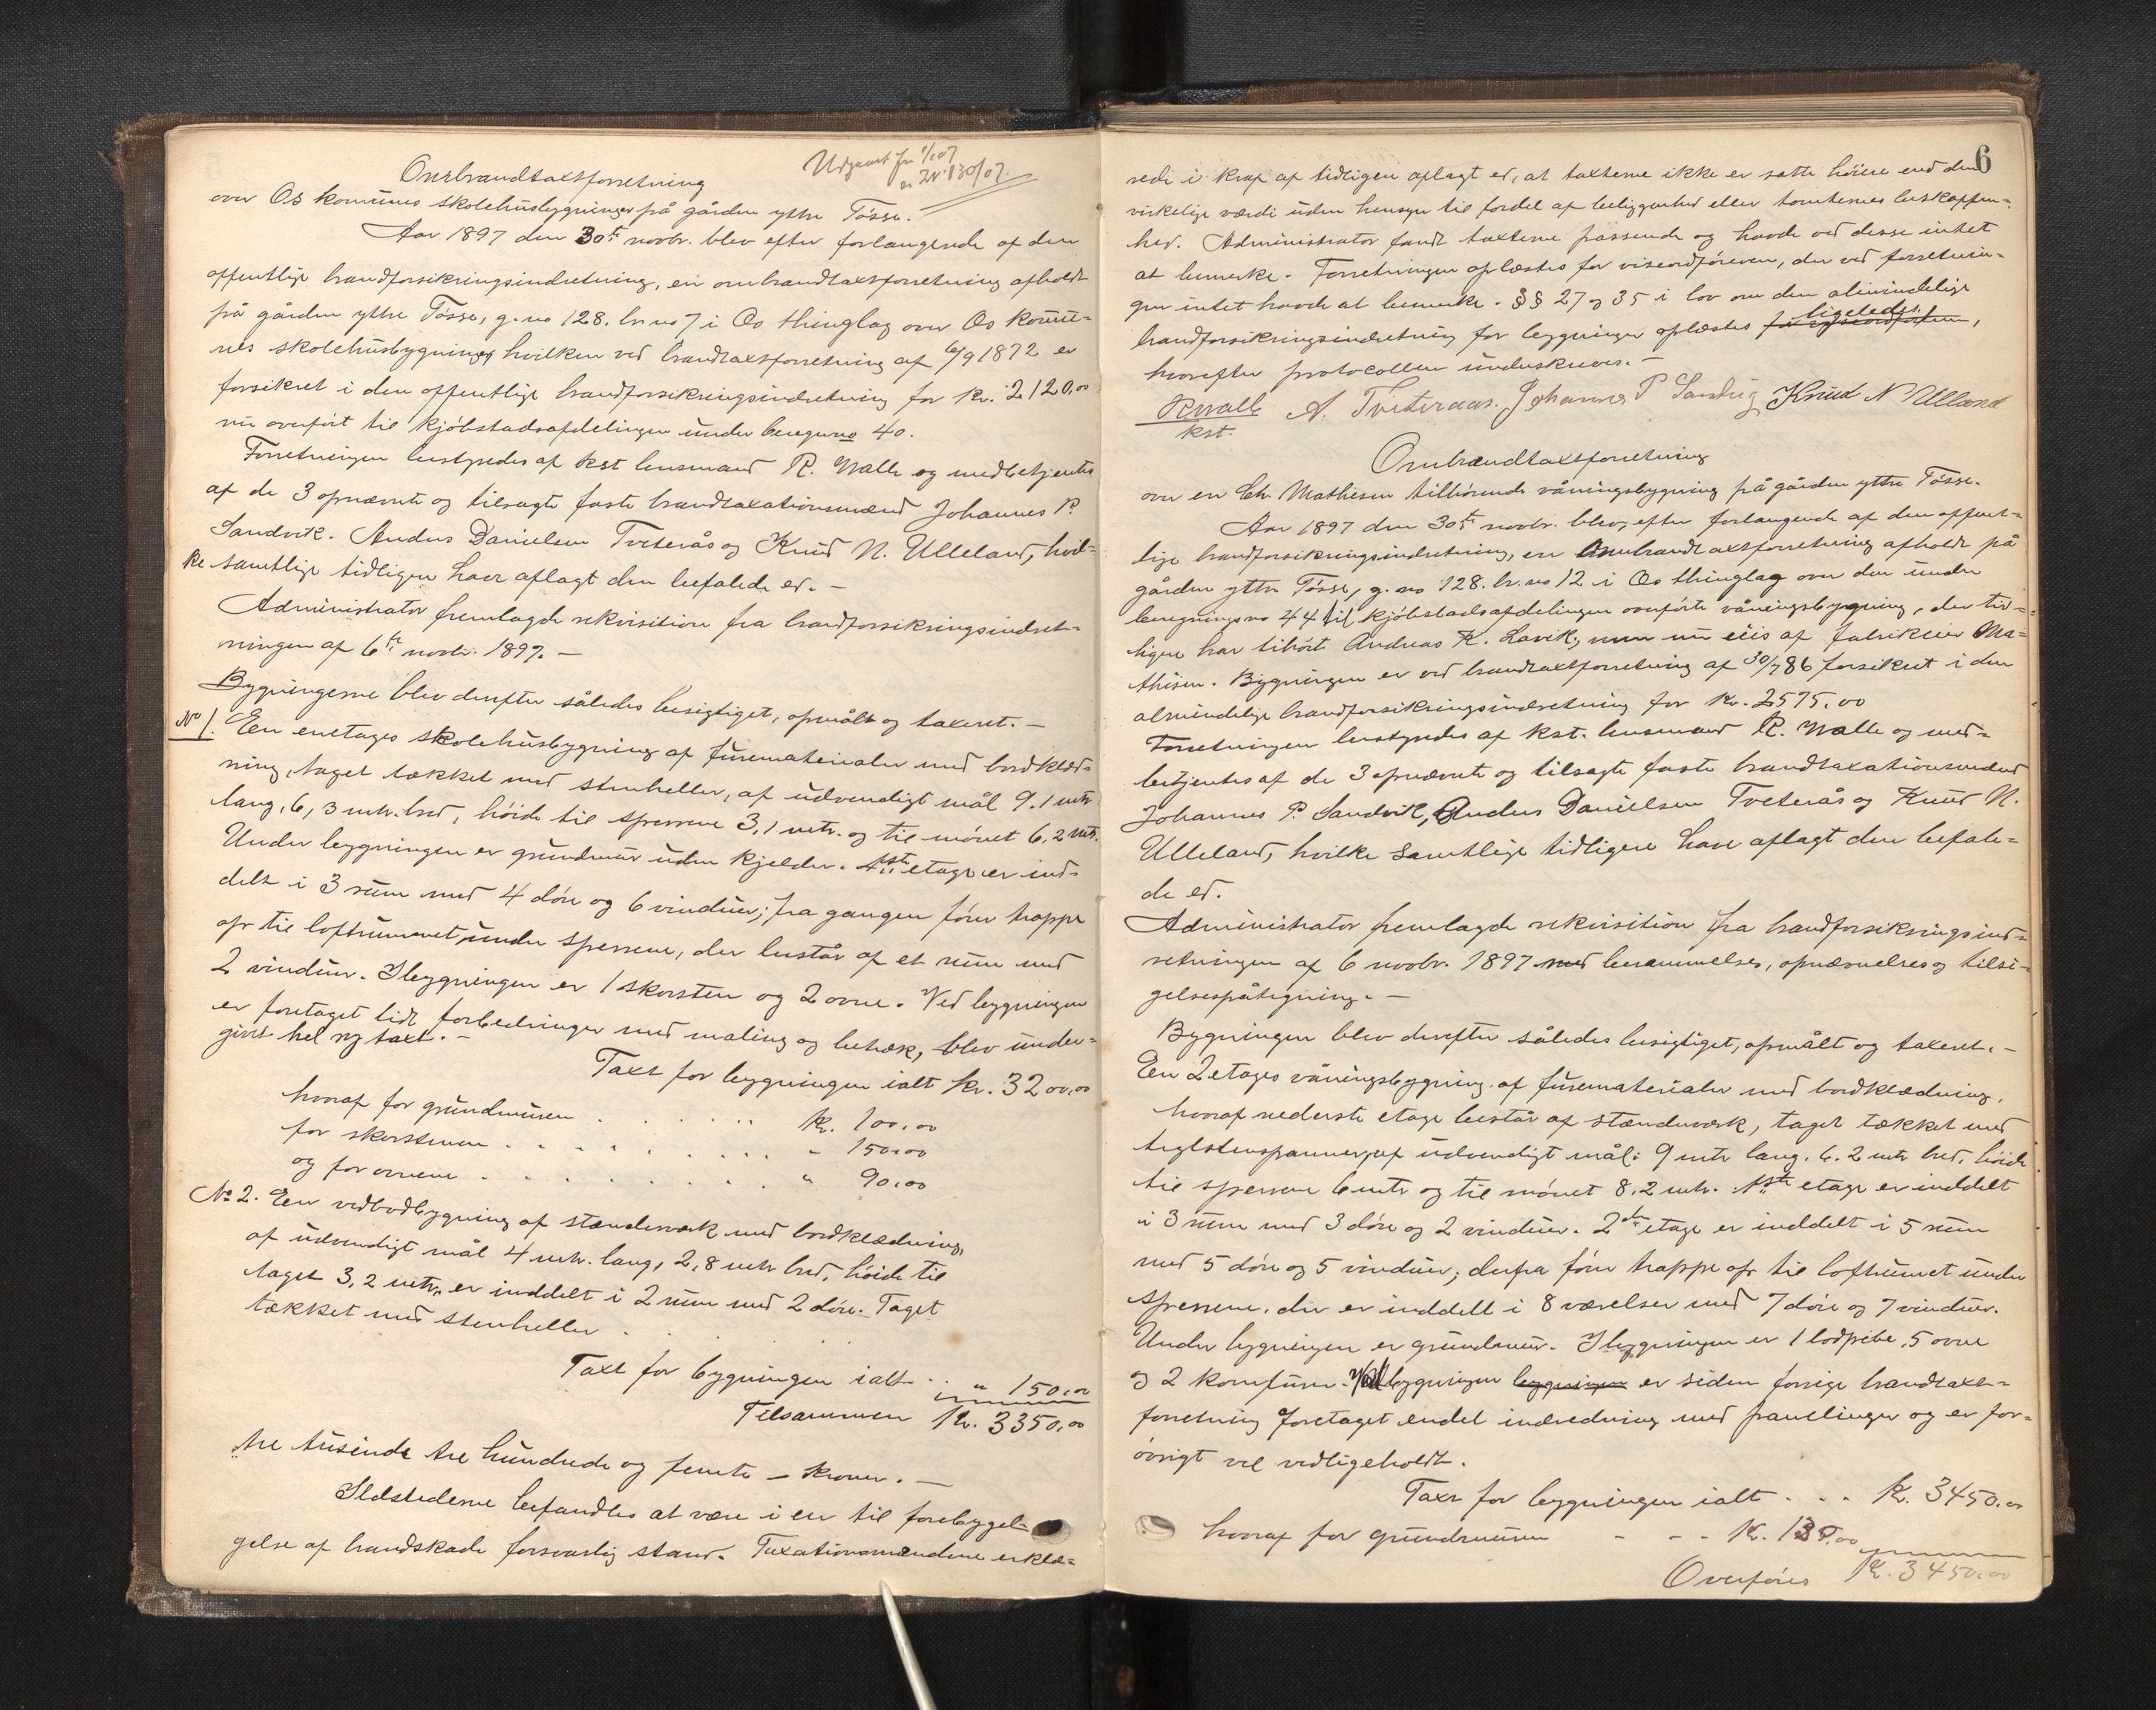 Udgaaet fra 1/1 07
Ombrandtaxtforretning
over Os komunes skolehusbygninger på gården yttre Tøsse.
Aar 1897 den 30te novbr. blev efter forlangende af den
offentlige brandforsikringsindretning, en ombrandtaxtforretning afholdt
på gården yttre Tøsse, g. no 128. br. no 7 i Os thinglag over Os komu-
nes skolehusbygninger hvilken ved brandtaxtforretning af 6/9 1872 er
forsikret i den offentlige brandforsikringsindretning for kr. 2120,00
nu overført til kjøbstadsafdelingen under beregn no 40.
Forretningen bestyredes af kst lensmand R. Walle og medbetjentes
af de 3 opnævnte og tilsagte faste brandtaxationsmænd Johannes P.
Sandvik. Anders Danielsen Tveterås og Knud N. Ulleland, hvil-
ke samtlige tidligere have aflagt den befalede ed. -
Administrator fremlagde rekvisition fra brandforsikringsindret-
ningen af 6te novbr. 1897. -
Bygningerne blev derefter således besigtiget, opmålt og taxeret. -
No 1. Een enetages skolehusbygning af furematerialer med bordklæd-
ning, taget tækket med stenheller, af udvendigt mål 9.1 mtr
lang, 6,3 mtr. bred, høide til sperrene 3,1 mtr. og til mønet 6,2 mtr.
Under bygningen er grundmur uden kjelder. 1ste etage er ind-
delt i 3 rum med 4 døre og 6 vinduer; fra gangen fører trappe
op til loftrummet under sperrene, der består af et rum med
2 vinduer. I bygningen er 1 skorsten og 2 ovne. Ved bygningen
er foretaget lidt forbedringer med maling og betræk, blev under-
givet hel ny taxt. -
Taxt for bygningen ialt kr. 3200,00
hvoraf for grundmuren . . . . . . kr. 100,00
for skorstenen . . . . . . . . . " 150,00
og for ovnene . . . . . . . . . " 90,00
No 2. Een vedbodbygning af stænderværk med bordklædning,
af udvendigt mål 4 mtr. lang, 2,8 mtr bred, høide til
taget 3,2 mtr. er inddelt i 2 rum med 2 døre. Taget
tækket med stenheller . . .
Taxt for bygningen ialt . . " 150,00
Tilsammen kr. 3350,00
tre tusinde tre hundrede og femti - kroner. -
Ildstederne befandtes at være i en til forebyggel-
gelse af brandskade forsvarlig stand. Taxationsmændene erklæ-
6
rede i kraf af tidligere aflagt ed, at taxterne ikke er satte høiere end den
virkelige værdi uden hensyn til fordel af beliggenhed eller tomternes beskaffen-
hed. Administrator fandt taxterne passende og havde ved desse intet
at bemerke. Forretningen oplæstes for viseordføreren, der ved forretnin-
gen intet havde at bemerke. §§ 27 og 35 i lov om den almindelige
brandforsikringsindretning for bygninger oplæstes ligeledes,
hvorefter protocollen underskrives. -
RWalle A. Tveteraas. Johannes P Sandvig Knud N Ulland
kst.
Ombrandtaxtforretning
over en Chr. Mathisen tilhørende våningsbygning på gården yttre Tøsse.
Aar 1897 den 30te novbr. blev, efter forlangende af den offent-
lige brandforsikringsindretning, en Ombrandtaxtforretning afholdt på
gården yttre Tøsse, g. no 128. br. no 12 i Os thinglag over den under
beregningsno 44 til kjøbstadsafdelingen overførte våningsbygning, der tid-
ligere har tihørt Andreas K. Lavik, men nu eiis af fabrikeier Ma-
thisen. Bygningen er ved brandtaxtforretning af 30/7 86 forsikret i den
almindelige brandforsikringsindretning for kr. 2575,00
Forretningen bestyredes af kst. lensmand R. Walle og med-
betjentes af de 3 opnævnte og tilsagte faste brandtaxationsmænd
Johannes P. Sandvik, Anders Danielsen Tveterås og Knud N.
Ulleland, hvilke samtlige tidligere have aflagt den befale-
de ed.
Administrator fremlagde rekvisition fra brandforsikringsind-
retningen af 6 novbr. 1897 med berammelses, opnævnelses og tilsi-
gelsespåtegning. -
Bygningen blev derefter således besigtiget, opmålt og taxeret. -
Een 2 etages våningsbygning af furematerialer med bordklædning,
hvoraf nederste etage består af stænderværk, taget tækket med
teglstenspanner, af udvendigt mål: 9 mtr lang. 6.2 mtr bred, høide
til sperrene 6 mtr og til mønet 8,2 mtr. 1ste etage er inddelt
i 3 rum med 3 døre og 2 vinduer. 2den etage er inddelt i 5 rum
med 5 døre og 5 vinduer; derfra fører trappe op til loftrumet under
sperrene, der er inddelt i 8 værelser med 7 døre og 7 vinduer.
Under bygningen er grundmur. I bygningen er 1 lodpibe, 5 ovne
og 2 komfurer. Ved bygningen bygningen er siden forrige brandtaxt-
forretning foretaget endel indredning med panelinger og er for-
øvrigt vel vedligeholdt.
Taxt for bygningen ialt . . . kr. 3450,00
hvoraf for grundmuren - - - kr.
Overføres kr. 3450,00